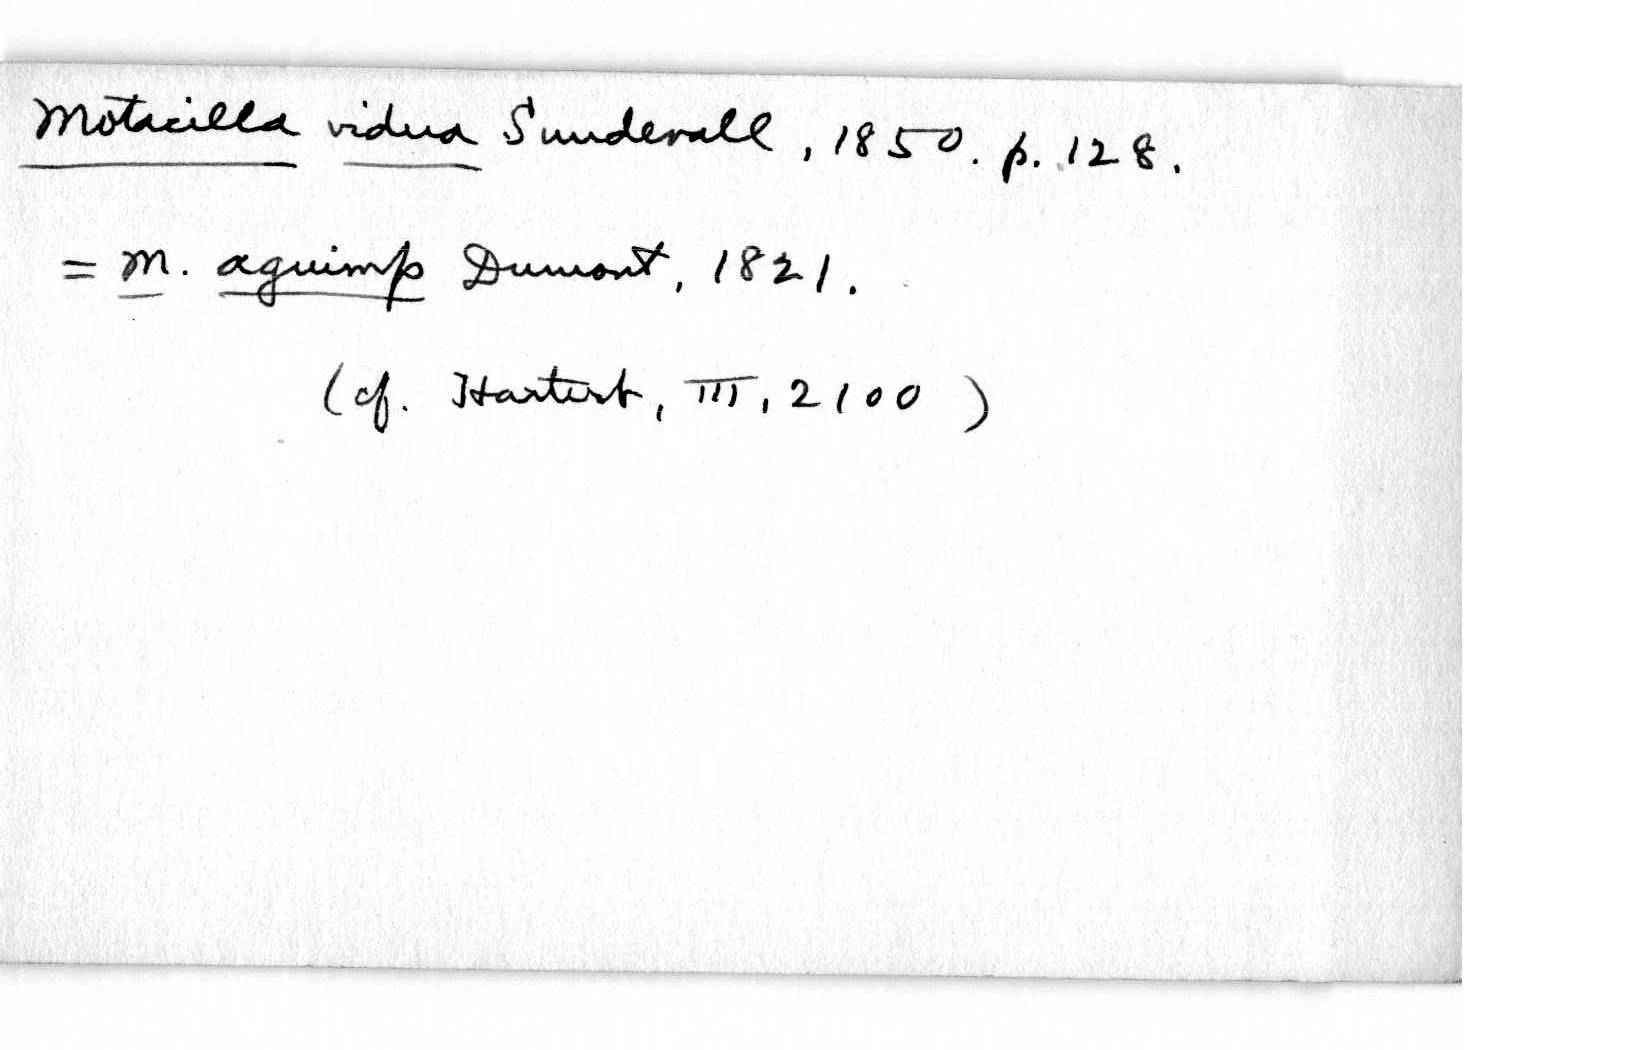 Motacilla vidua Sundevall, 1850. p. 128.
= M. aguimp Dumont, 1821.
(cf. Hartert, III, 2100)